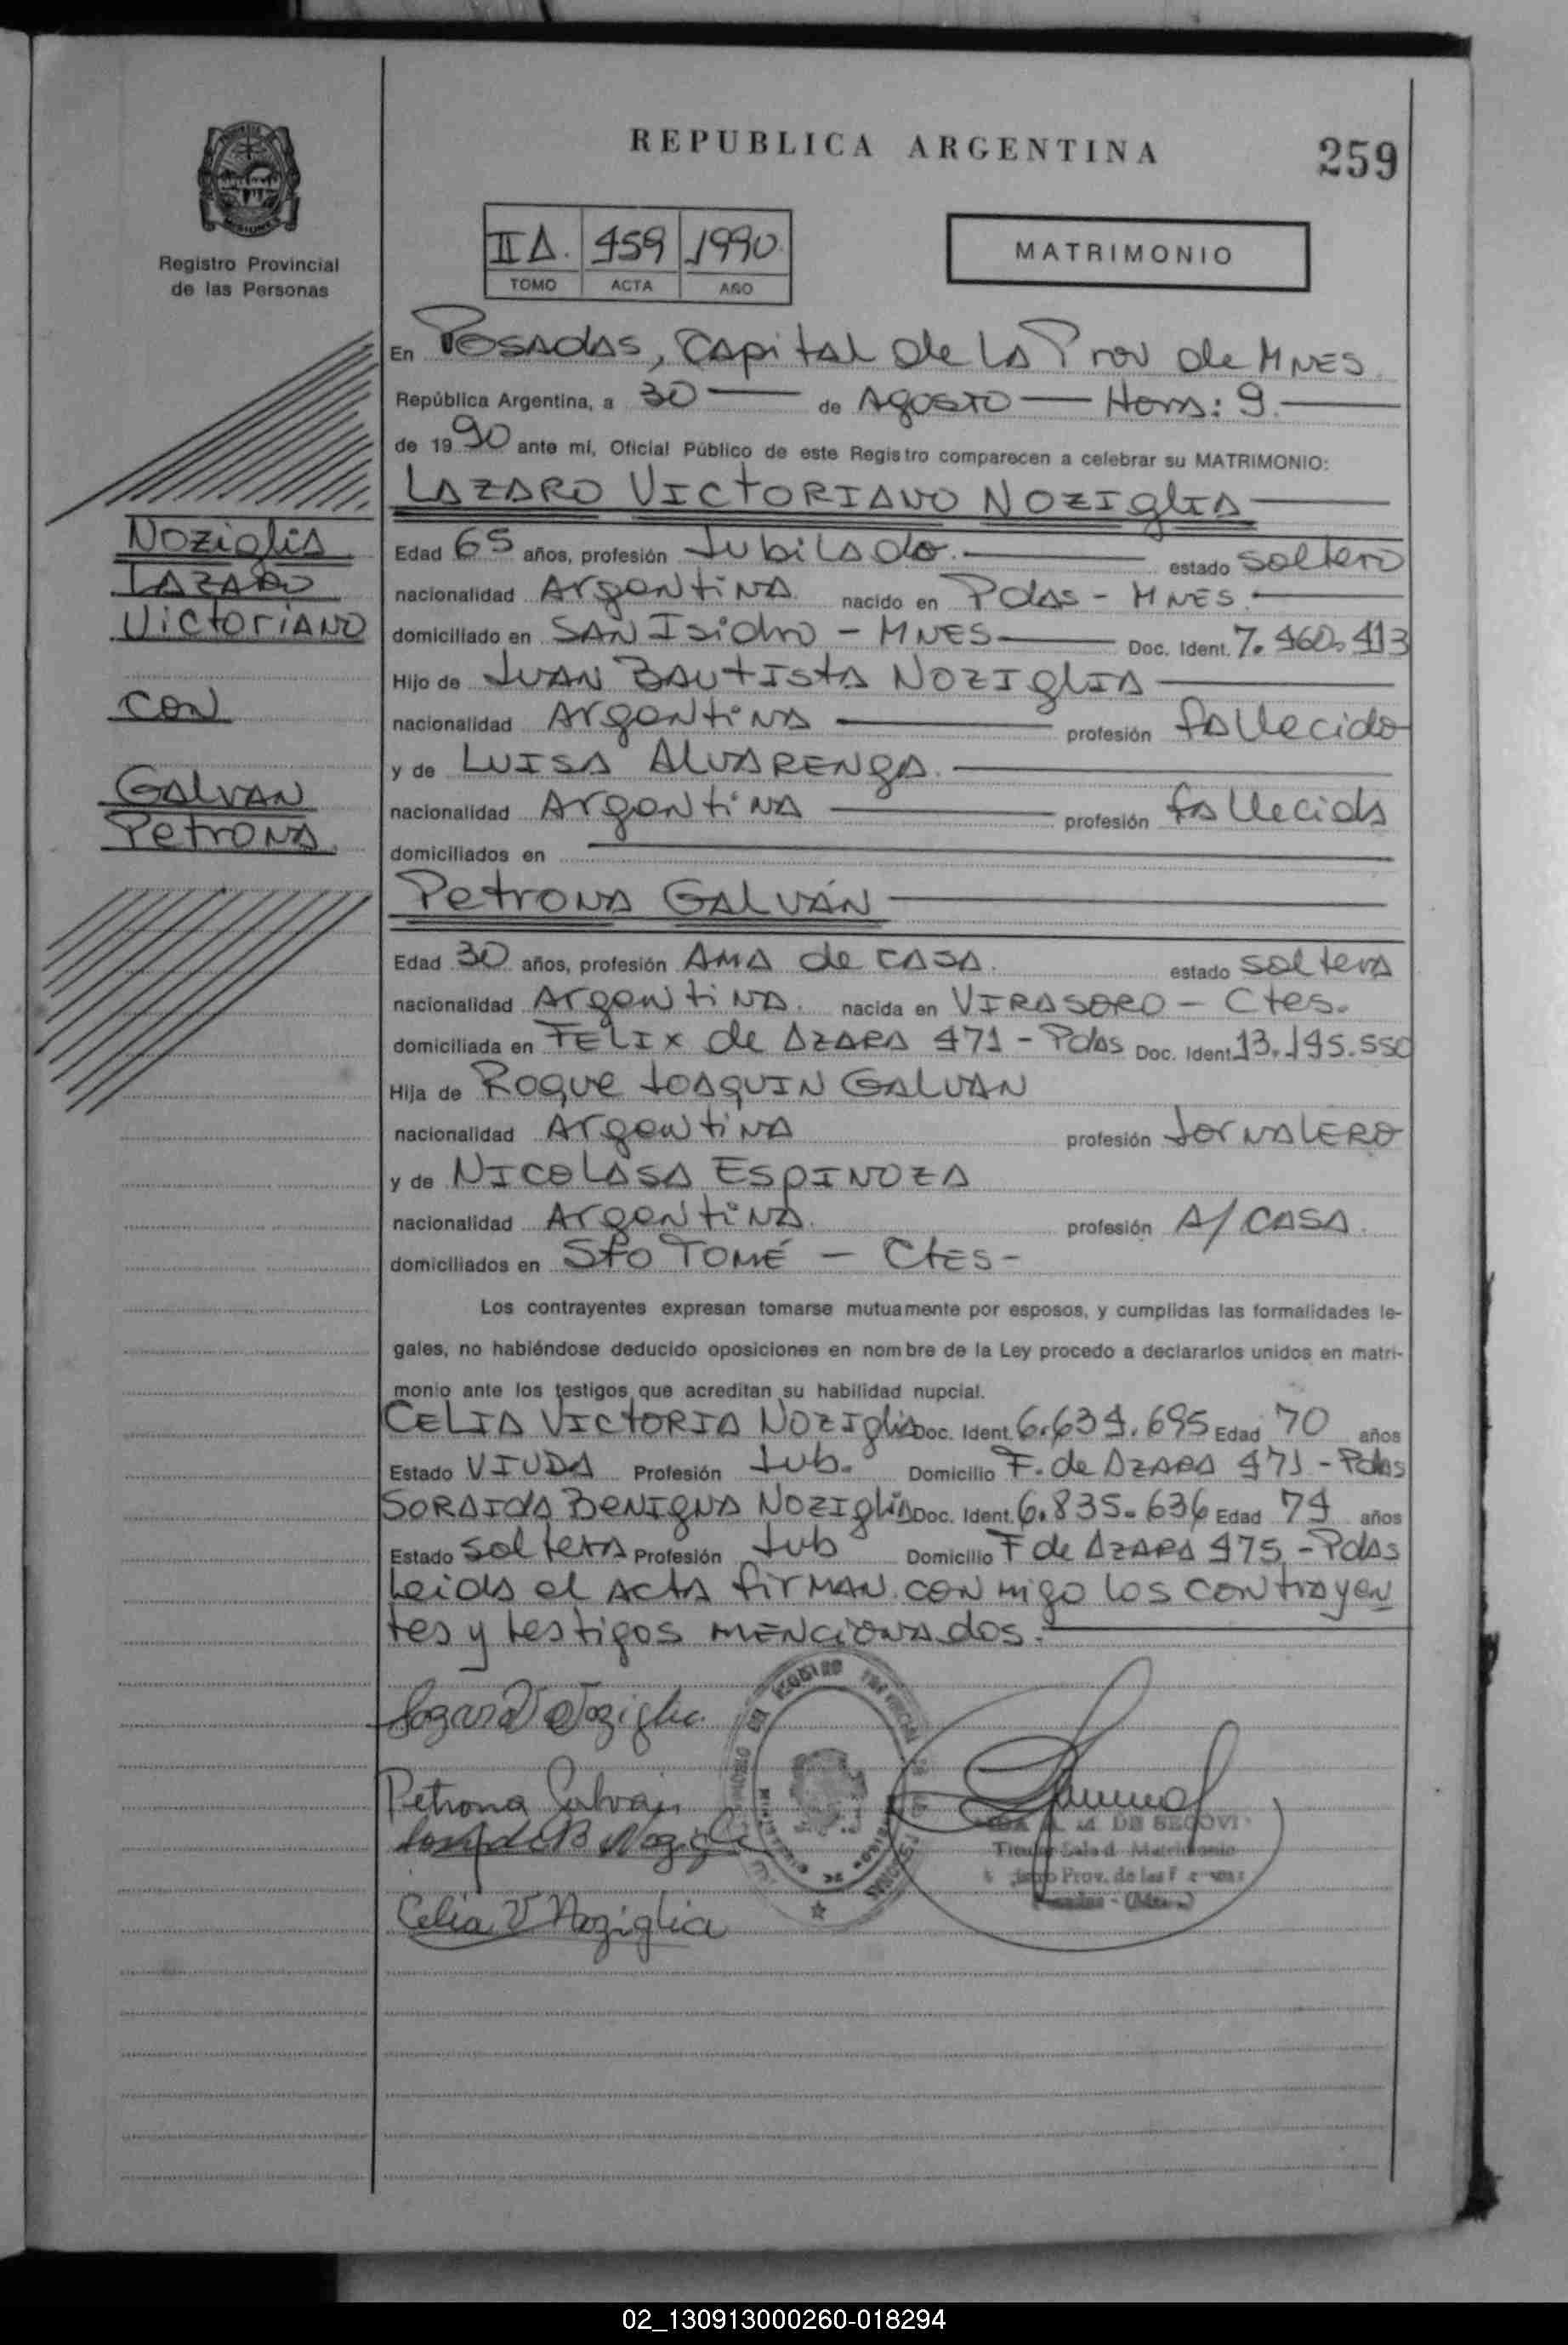 REPUBLICA ARGENTINA
259
Registro Provincial
de las Personas
II A. 459 1990.
TOMO ACTA AÑO
MATRIMONIO
En Posadas, Capital de la Prov de Mnes
República Argentina, a 30 de Agosto Hora: 9.
de 1990 ante mi, Oficial Público de este Registro comparecen a celebrar su MATRIMONIO:
LAZARO VICTORIANO NOZIGLIA
Noziglia
LAZARO
Victoriano
con
GALVAN
Petrona
Edad 65 años, profesión Jubilado. estado soltero
nacionalidad Argentina nacido en Pdas - Mnes.
domiciliado en SAN Isidro - MNES Doc. Ident. 7.460.413
Hijo de JUAN BAUTISTA NOZIGLIA
nacionalidad Argentina profesión fallecido
y de LUISA ALVARENGA.
nacionalidad Argentina profesión fallecida
domiciliados en
Petrona GALVÁN
Edad 30 años, profesión AMA de CASA. estado soltera
nacionalidad Argentina. nacida en VIRASORO - Ctes.
domiciliada en FELIX de AZARA 471 - Pdas Doc. Ident. 13.195.550
Hija de Roque JOAQUIN GALVAN
nacionalidad Argentina profesión JORNALERO
y de NICOLASA ESPINOZA
nacionalidad Argentina. profesión A/ CASA.
domiciliados en Sto TOMÉ - Ctes-
Los contrayentes expresan tomarse mutuamente por esposos, y cumplidas las formalidades le-
gales, no habiéndose deducido oposiciones en nombre de la Ley procedo a declararlos unidos en matri-
monio ante los testigos que acreditan su habilidad nupcial.
CELIA VICTORIA NOZIGLIA Doc. Ident. 6.634.695 Edad 70 años
Estado VIUDA Profesión Jub. Domicilio F. de AZARA 471 - Pdas
SORAIDA BENIGNA NOZIGLIA Doc. Ident. 6.835.636 Edad 74 años
Estado soltera Profesión Jub Domicilio F de AZARA 475 - Pdas
Leida el acta firman conmigo los contrayen
tes y testigos mencionados.
Lazaro V Noziglia
Petrona Galván
B Noziglia
Celia V Noziglia
M. DE SEGOVI
Titular Sala d Matrimonio
Prov. de las
Posadas - (Mnes.)
02_130913000260-018294